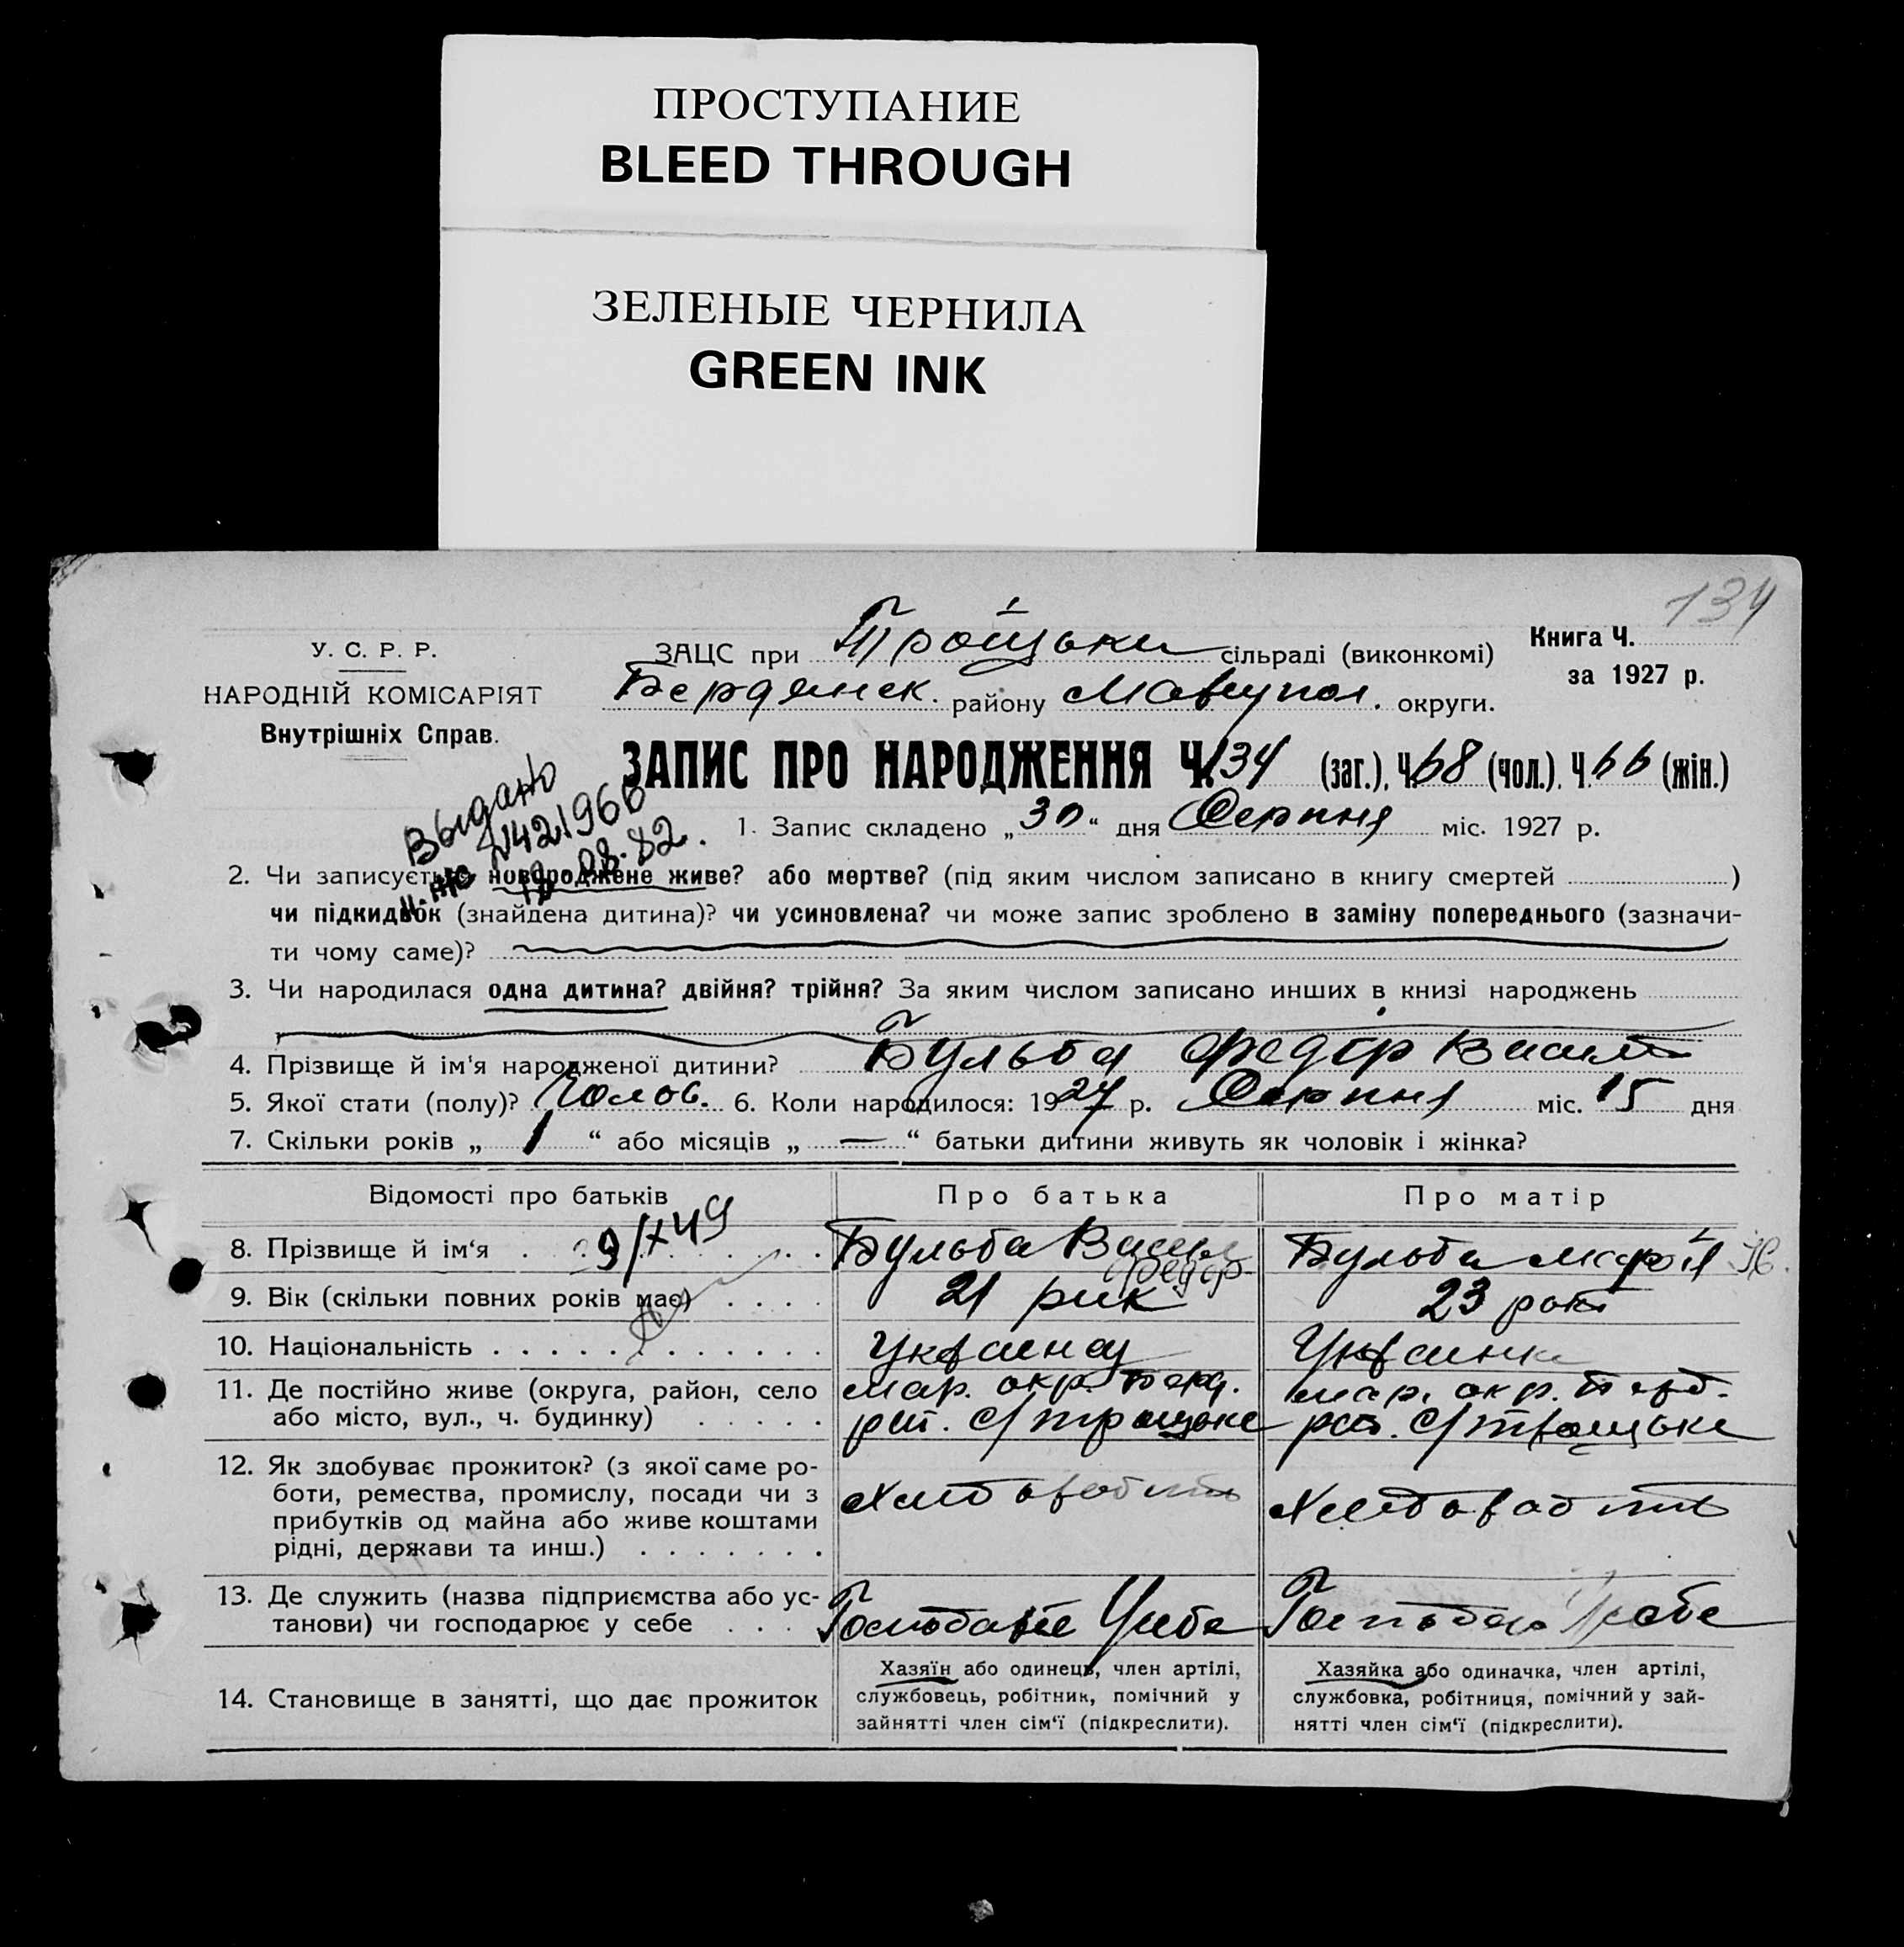 ПРОСТУПАНИЕ
BLEED THROUGH
ЗЕЛЕНЫЕ ЧЕРНИЛА
GREEN INK
134
У. С. Р. Р.
НАРОДНІЙ КОМІСАРІЯТ
Внутрішніх Справ.
ЗАЦС при Троїцькій сільраді (виконкомі)
Бердянск. району Маріупол. округи.
Книга Ч.
за 1927 р.
ЗАПИС ПРО НАРОДЖЕННЯ Ч. 134 (заг.), Ч. 68 (чол.), Ч. 66 (жін.)
Выдано
2421966
12.08.82.
1. Запис складено „30“ дня Серпня міс. 1927 р.
2. Чи записується новороджене живе? або мертве? (під яким числом записано в книгу смертей )
чи підкидьок (знайдена дитина)? чи усиновлена? чи може запис зроблено в заміну попереднього (зазначи-
ти чому саме)?
3. Чи народилася одна дитина? двійня? трійня? За яким числом записано инших в книзі народжень
4. Прізвище й ім'я народженої дитини? Бульба Федір Васил
5. Якої стати (полу)? Чолов. 6. Коли народилося: 1927 р. Серпня міс. 15 дня
7. Скільки років „ 1 “ або місяців „ — “ батьки дитини живуть як чоловік і жінка?
Відомості про батьків
Про батька
Про матір
9/X 49
8. Прізвище й ім‘я
Бульба Василь
Федор
Бульба Марія
9. Вік (скільки повних років має)
21 рик
23 роки
10. Національність
Украинец
Украинка
11. Де постійно живе (округа, район, село
або місто, вул., ч. будинку)
мар. окр. Берд.
рай. с/Троицьке
мар. окр. Берд.
рай. с/Троицьке
12. Як здобуває прожиток? (з якої саме ро-
боти, ремества, промислу, посади чи з
прибутків од майна або живе коштами
рідні, держави та инш.)
Хлиборобить
Хлиборобить
13. Де служить (назва підприємства або ус-
танови) чи господарює у себе
Господарює У себе
Господарь У себе
14. Становище в занятті, що дає прожиток
Хазяїн або одинець, член артілі,
службовець, робітник, помічний у
зайнятті член сім‘ї (підкреслити).
Хазяйка або одиначка, член артілі,
службовка, робітниця, помічний у зай-
нятті член сім‘ї (підкреслити).